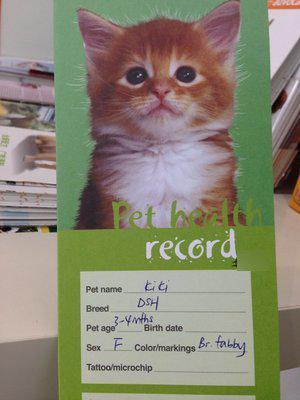 Pet health
record
Pet name Kiki
Breed DSH
Pet age 3-4mths Birth date
Sex F Color/markings Br. tabby
Tattoo/microchip